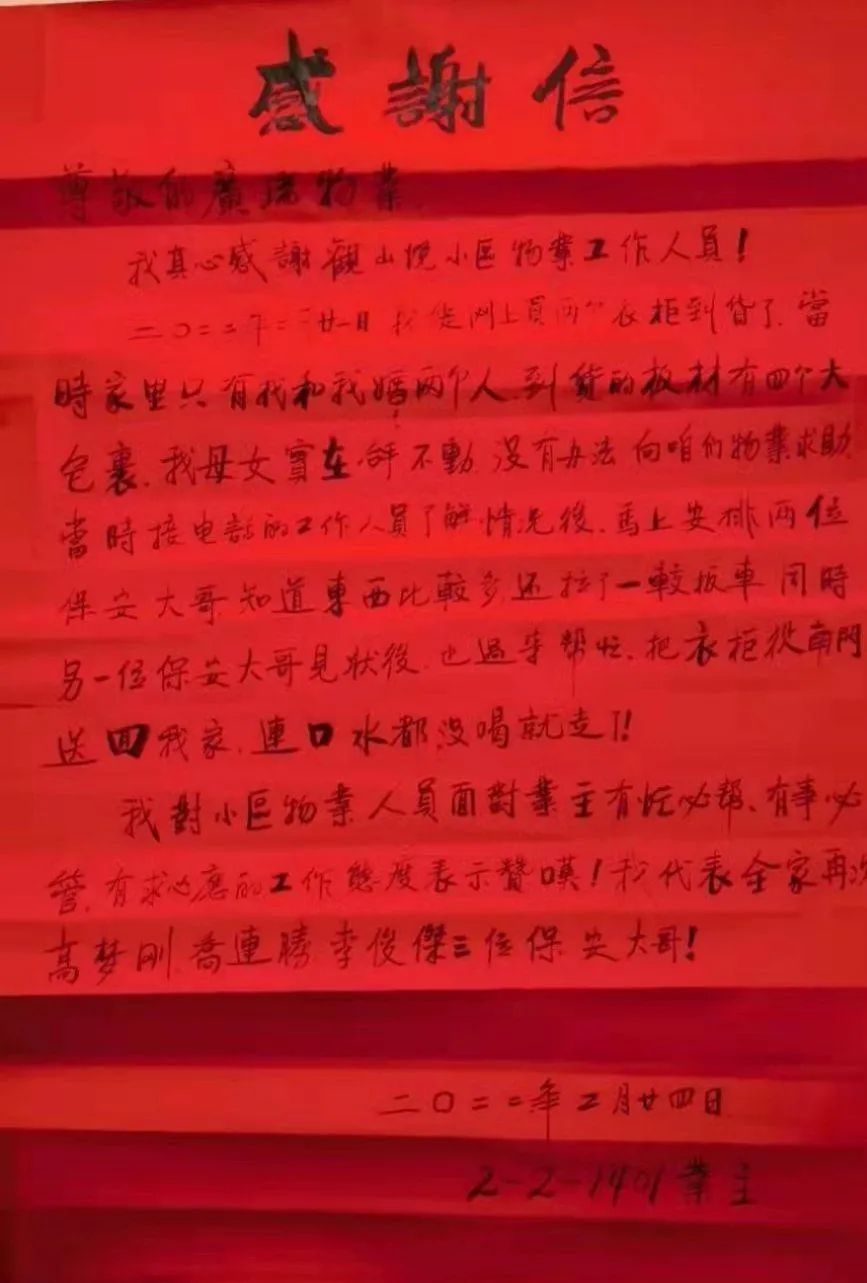 感謝信
尊敬的廣瑞物業
我真心感謝觀山悅小區物業工作人員！
二〇二二年二廿一日我從网上買两个衣柜到貨了、當
時家里只有我和我媽两个人、到貨的板材有四个大
包裹、我母女實在 不動、没有办法向咱们物業求助
當時接电話的工作人員了解情况後、馬上安排两位
保安大哥、知道東西比較多、还拉了一較板車同時
另一位保安大哥見状後、也過来幫忙、把衣柜從南門
送回我家、連口水都没喝就走了！
我對小區物業人員面對業主有忙必帮、有事必
管、有求必應的工作態度表示贊嘆！我代表全家再次
高梦刚、喬連勝、李俊傑三位保安大哥！
二〇二二年二月廿四日
2-2-1401業主